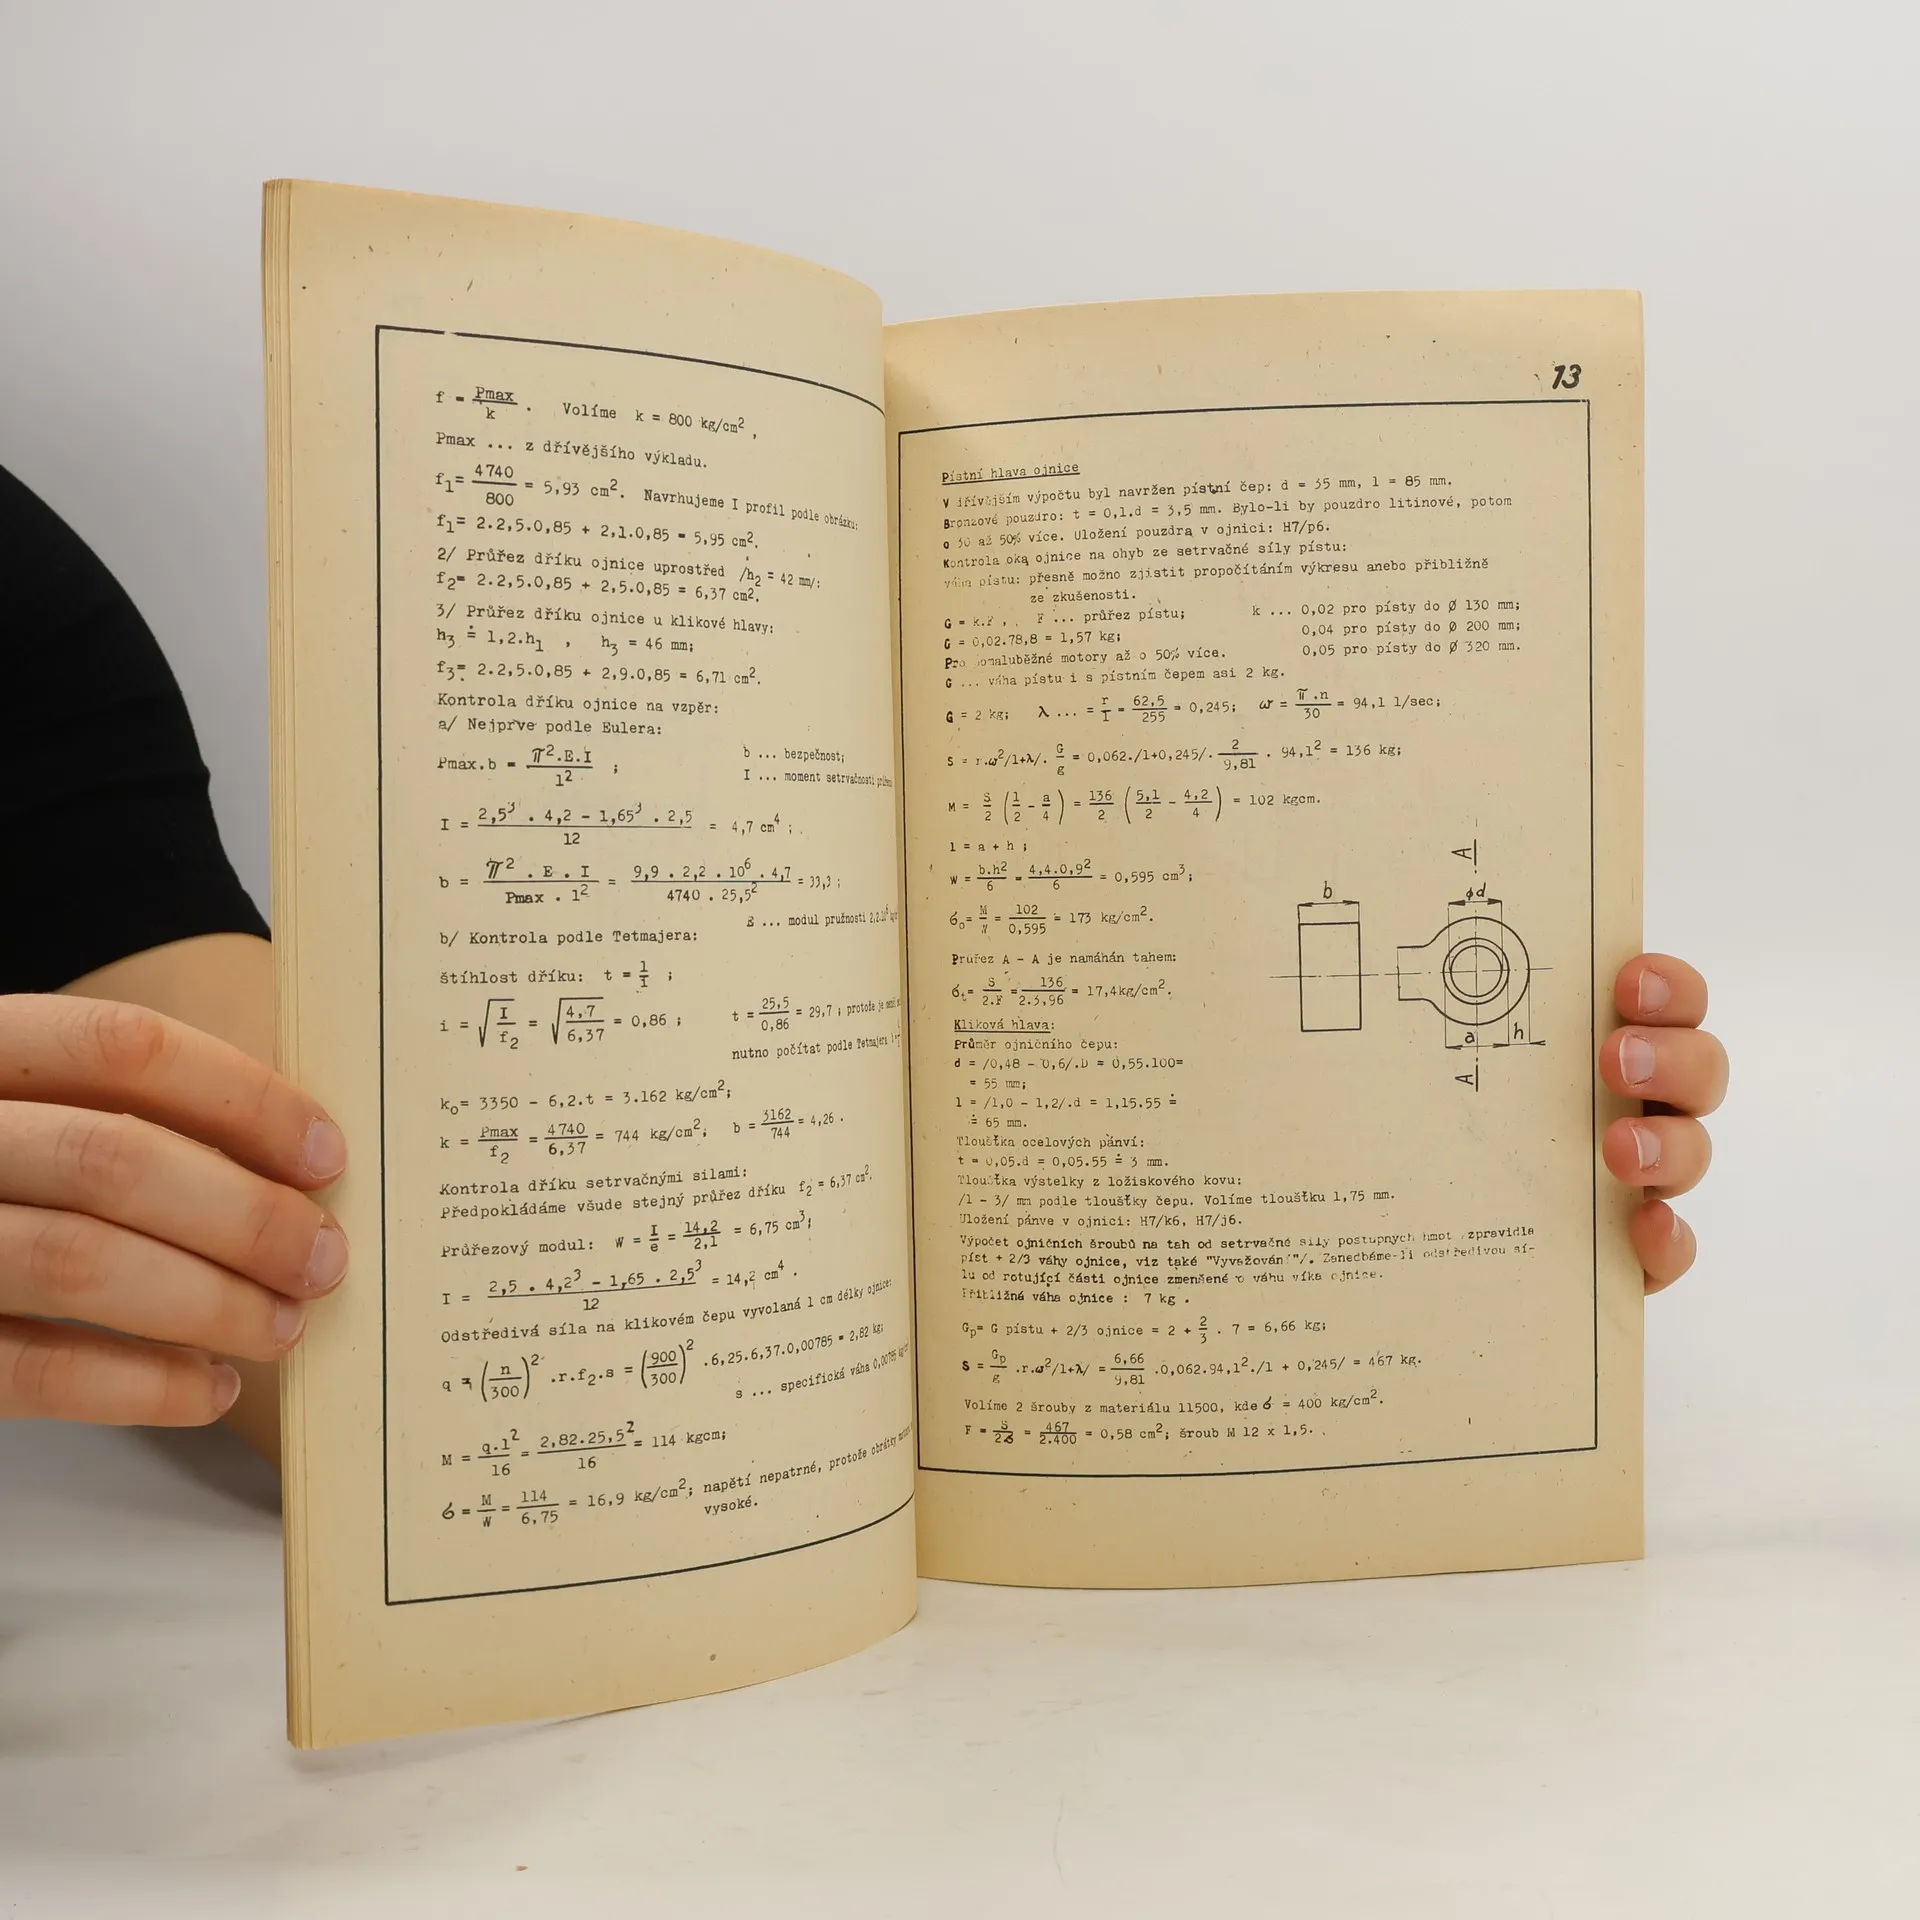 f = Pmax/k . Volíme k = 800 kg/cm²,
Pmax ... z dřívějšího výkladu.
f₁= 4740/800 = 5,93 cm². Navrhujeme I profil podle obrázku:
f₁= 2.2,5.0,85 + 2,1.0,85 = 5,95 cm².
2/ Průřez dříku ojnice uprostřed /h₂ = 42 mm/:
f₂= 2.2,5.0,85 + 2,5.0,85 = 6,37 cm².
3/ Průřez dříku ojnice u klikové hlavy:
h₃ ≐ 1,2.h₁ , h₃ = 46 mm;
f₃= 2.2,5.0,85 + 2,9.0,85 = 6,71 cm².
Kontrola dříku ojnice na vzpěr:
a/ Nejprve podle Eulera:
Pmax.b = π².E.I/l² ; b ... bezpečnost;
I ... moment setrvačnosti
I = 2,5³ . 4,2 - 1,65³ . 2,5/12 = 4,7 cm⁴ ;
b = π² . E . I/Pmax . l² = 9,9 . 2,2 . 10⁶ . 4,7/4740 . 25,5² = 33,3 ;
E ... modul pružnosti 2,2.10⁶
b/ Kontrola podle Tetmajera:
štíhlost dříku: t = l/i ;
i = √I/f₂ = √4,7/6,37 = 0,86 ; t = 25,5/0,86 = 29,7 ; protože je
nutno počítat podle Tetmajera
k₀= 3350 - 6,2.t = 3.162 kg/cm²;
k = Pmax/f₂ = 4740/6,37 = 744 kg/cm²; b = 3162/744 = 4,26 .
Kontrola dříku setrvačnými silami:
Předpokládáme všude stejný průřez dříku f₂ = 6,37 cm².
Průřezový modul: W = I/e = 14,2/2,1 = 6,75 cm³;
I = 2,5 . 4,2³ - 1,65 . 2,5³/12 = 14,2 cm⁴ .
Odstředivá síla na klikovém čepu vyvolaná 1 cm délky ojnice:
q = (n/300)² .r.f₂.s = (900/300)² .6,25.6,37.0,00785 = 2,82 kg;
s ... specifická váha 0,00785
M = q.l²/16 = 2,82.25,5²/16 = 114 kgcm;
σ = M/W = 114/6,75 = 16,9 kg/cm²; napětí nepatrné, protože obrátky
vysoké.
13
Pístní hlava ojnice
V dřívějším výpočtu byl navržen pístní čep: d = 35 mm, l = 85 mm.
Bronzové pouzdro: t = 0,1.d = 3,5 mm. Bylo-li by pouzdro litinové, potom
o 30 až 50% více. Uložení pouzdra v ojnici: H7/p6.
Kontrola oka ojnice na ohyb ze setrvačné síly pístu:
váha pístu: přesně možno zjistit propočítáním výkresu anebo přibližně
ze zkušenosti.
G = k.F , F ... průřez pístu; k ... 0,02 pro písty do Ø 130 mm;
G = 0,02.78,8 = 1,57 kg; 0,04 pro písty do Ø 200 mm;
Pro pomaluběžné motory až o 50% více. 0,05 pro písty do Ø 320 mm.
G ... váha pístu i s pístním čepem asi 2 kg.
G = 2 kg; λ ... = r/l = 62,5/255 = 0,245; ω = π.n/30 = 94,1 1/sec;
S = r.ω²/1+λ/. G/g = 0,062./1+0,245/. 2/9,81 . 94,1² = 136 kg;
M = S/2 (l/2 - a/4) = 136/2 (5,1/2 - 4,2/4) = 102 kgcm.
l = a + h ;
W = b.h²/6 = 4,4.0,9²/6 = 0,595 cm³;
σ₀= M/W = 102/0,595 = 173 kg/cm².
Průřez A - A je namáhán tahem:
σₜ= S/2.F = 136/2.3,96 = 17,4kg/cm².
A
b
ød
a
h
A
Kliková hlava:
Průměr ojničního čepu:
d = /0,48 - 0,6/.D = 0,55.100=
= 55 mm;
l = /1,0 - 1,2/.d = 1,15.55 ≐
≐ 65 mm.
Tloušťka ocelových pánví:
t = 0,05.d = 0,05.55 ≐ 3 mm.
Tloušťka výstelky z ložiskového kovu:
/1 - 3/ mm podle tloušťky čepu. Volíme tloušťku 1,75 mm.
Uložení pánve v ojnici: H7/k6, H7/j6.
Výpočet ojničních šroubů na tah od setrvačné síly postupných hmot /zpravidla
píst + 2/3 váhy ojnice, viz také "Vyvažování"/. Zanedbáme-li odstředivou sí-
lu od rotující části ojnice zmenšené o váhu víka ojnice.
Přibližná váha ojnice : 7 kg .
Gₚ= G pístu + 2/3 ojnice = 2 + 2/3 . 7 = 6,66 kg;
S = Gₚ/g .r.ω²/1+λ/ = 6,66/9,81 .0,062.94,1²./1 + 0,245/ = 467 kg.
Volíme 2 šrouby z materiálu 11500, kde σ = 400 kg/cm².
F = S/2σ = 467/2.400 = 0,58 cm²; šroub M 12 x 1,5.